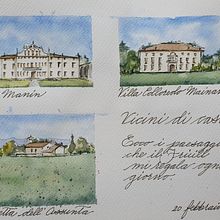 Manin
Villa Colloredo Mainar
Vicini di cas
Ecco i paesagg
che il Friuli
mi regala ogni
giorno.
dell'Assunta
20 febbraio